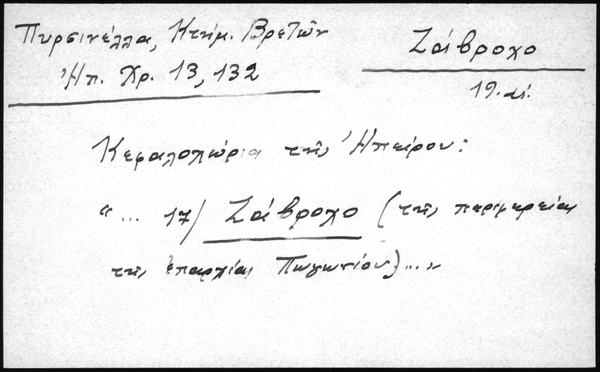 Πυρσινέλλα, Κτήμ. Βρετῶν
Ἠπ. Χρ. 13, 132
Ζάβροχο
19. αἰ.
Κεφαλοχώρια τῆς Ἠπείρου:
"... 17/ Ζάβροχο (τῆς περιφερείας
τῆς ἐπαρχίας Πωγωνίου)..."